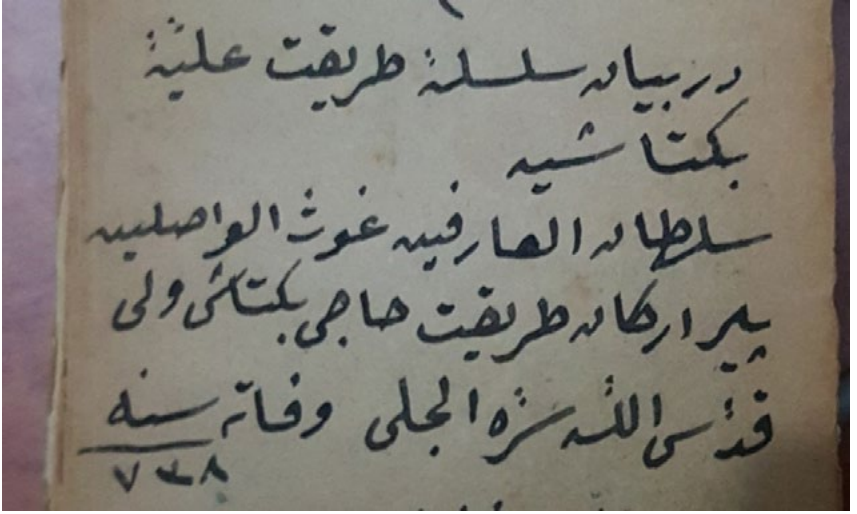 در بيان سلسلۀ طريقت عليۀ
بكتاشيه
سلطان العارفين غوث الواصلين
پير اركان طريقت حاجى بكتاش ولى
قدّس اللّه سرّه الجلى وفاته سنه
٧٣٨